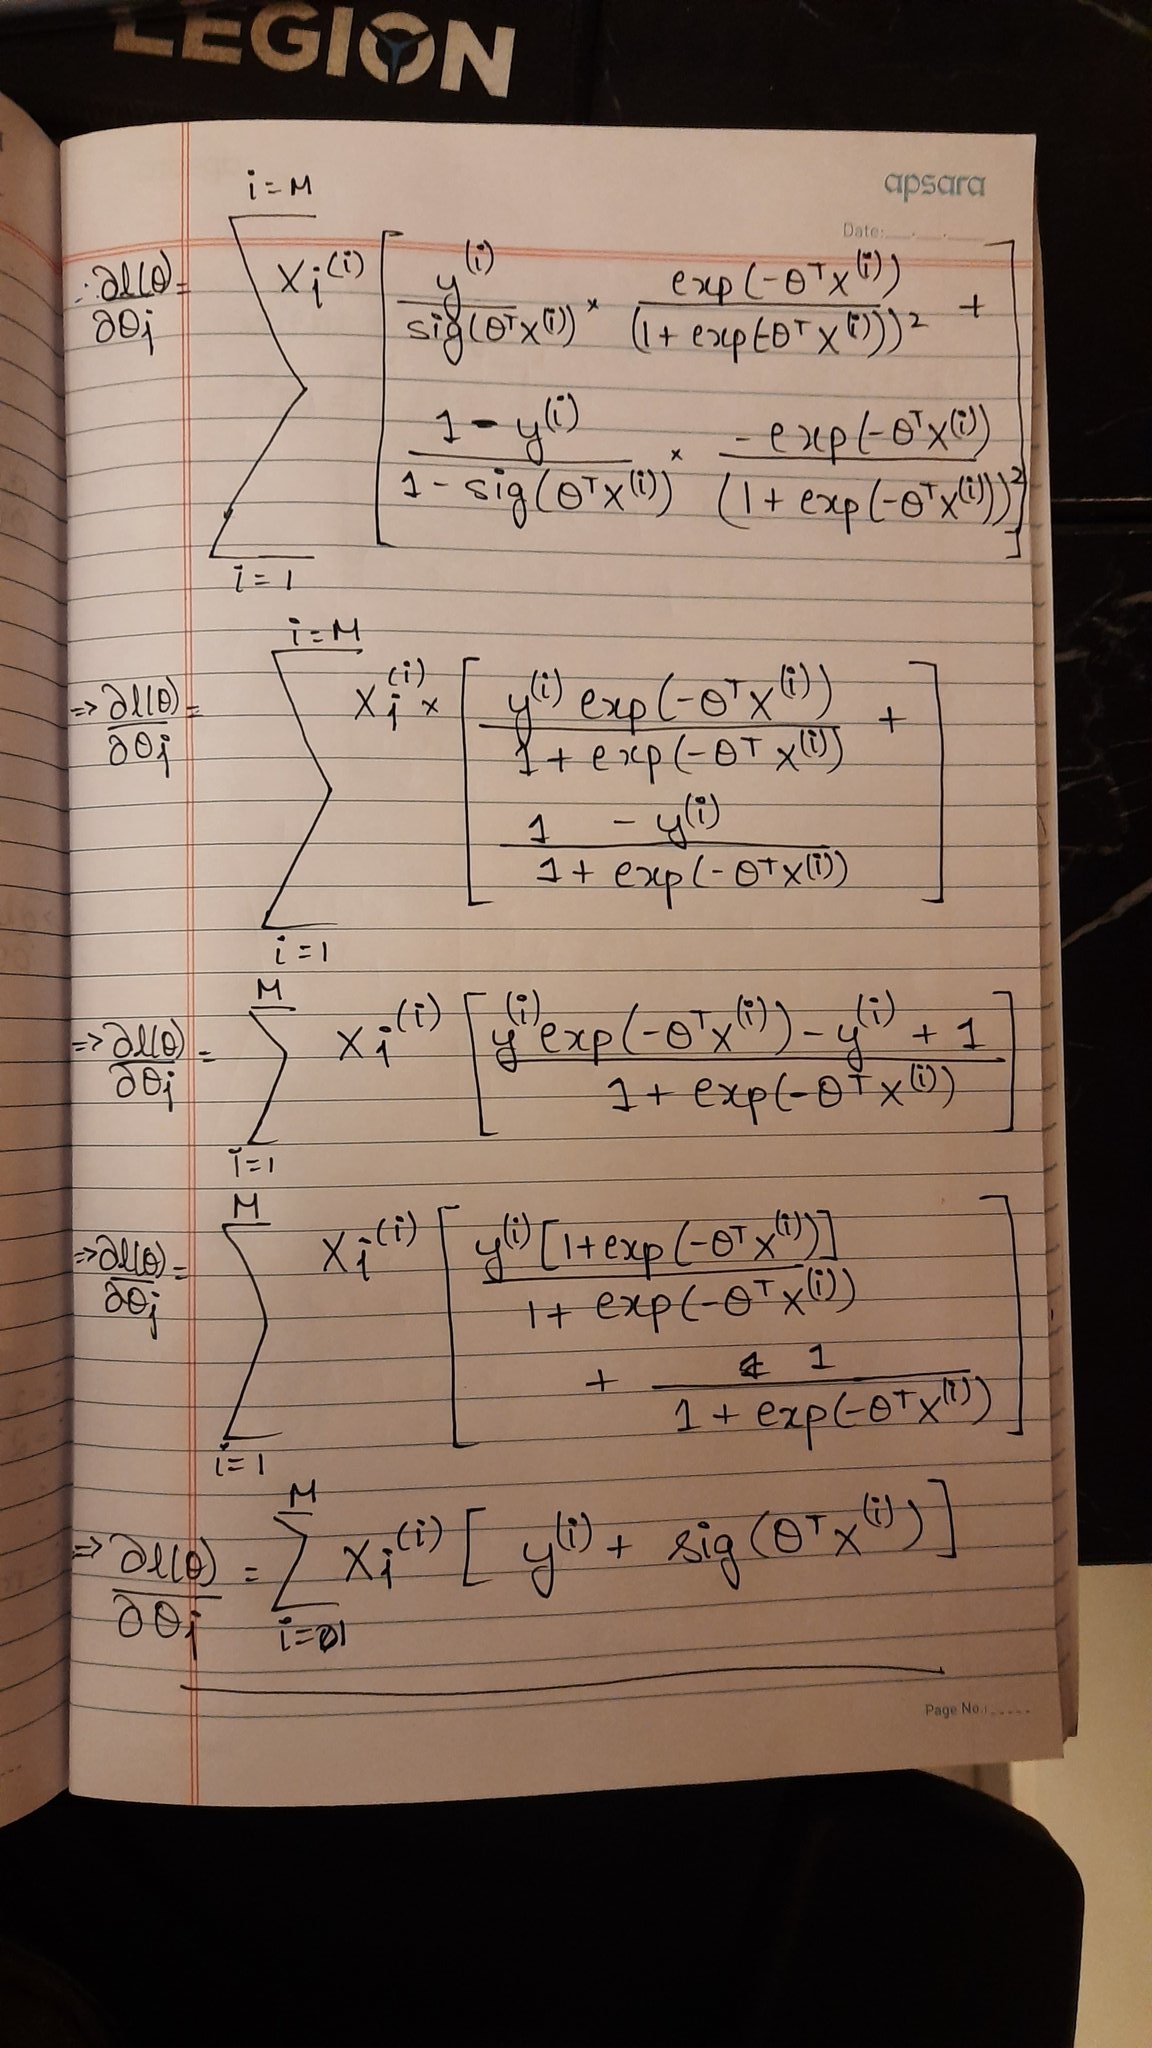 LEGION
apsara
Date:
i = M
∴ ∂l(θ)/∂θj = Σ Xj^(i) [ y^(i) / sig(θ^T X^(i)) × exp(-θ^T X^(i)) / (1 + exp(-θ^T X^(i)))^2 +
1 - y^(i) / 1 - sig(θ^T X^(i)) × -exp(-θ^T X^(i)) / (1 + exp(-θ^T X^(i)))^2 ]
i = 1
i = M
=> ∂l(θ)/∂θj = Σ Xj^(i) × [ y^(i) exp(-θ^T X^(i)) / 1 + exp(-θ^T X^(i)) +
1 - y^(i) / 1 + exp(-θ^T X^(i)) ]
i = 1
M
=> ∂l(θ)/∂θj = Σ Xj^(i) [ y^(i) exp(-θ^T X^(i)) - y^(i) + 1 / 1 + exp(-θ^T X^(i)) ]
i = 1
M
=> ∂l(θ)/∂θj = Σ Xj^(i) [ y^(i) [1 + exp(-θ^T X^(i))] / 1 + exp(-θ^T X^(i))
+ 1 / 1 + exp(-θ^T X^(i)) ]
i = 1
M
=> ∂l(θ)/∂θj = Σ Xj^(i) [ y^(i) + sig(θ^T X^(i)) ]
i = 1
Page No.: